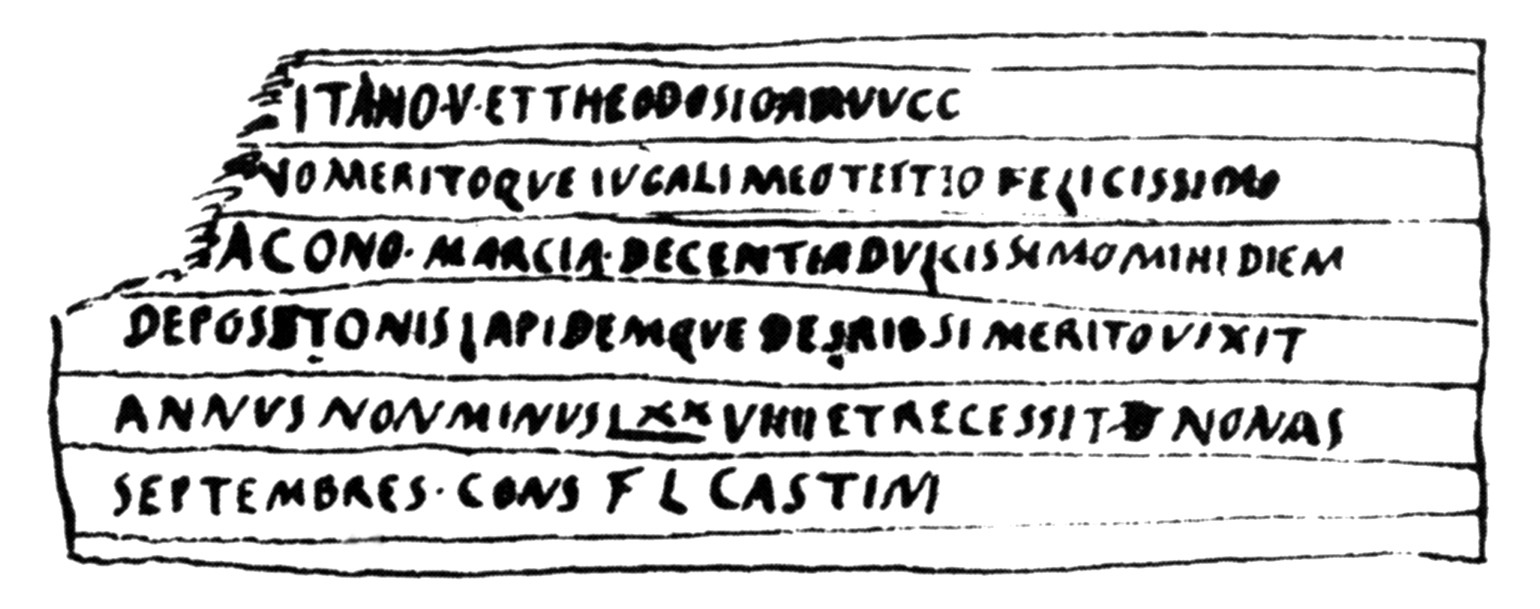 ITANO·V·ET THEODOSIO ANNVVCC
NO MERITOQVE IVGALI MEO TETTIO FELICISSIMO
ACONO·MARCIA·DECENTIA DVLCISSIMO MIHI DIEM
DEPOSETONIS LAPIDEMQVE DESRIBSI MERITO VIXIT
ANNVS NON MINVS LXXVIIII ET RECESSIT D NONAS
SEPTEMBRES·CONS F L CASTINI